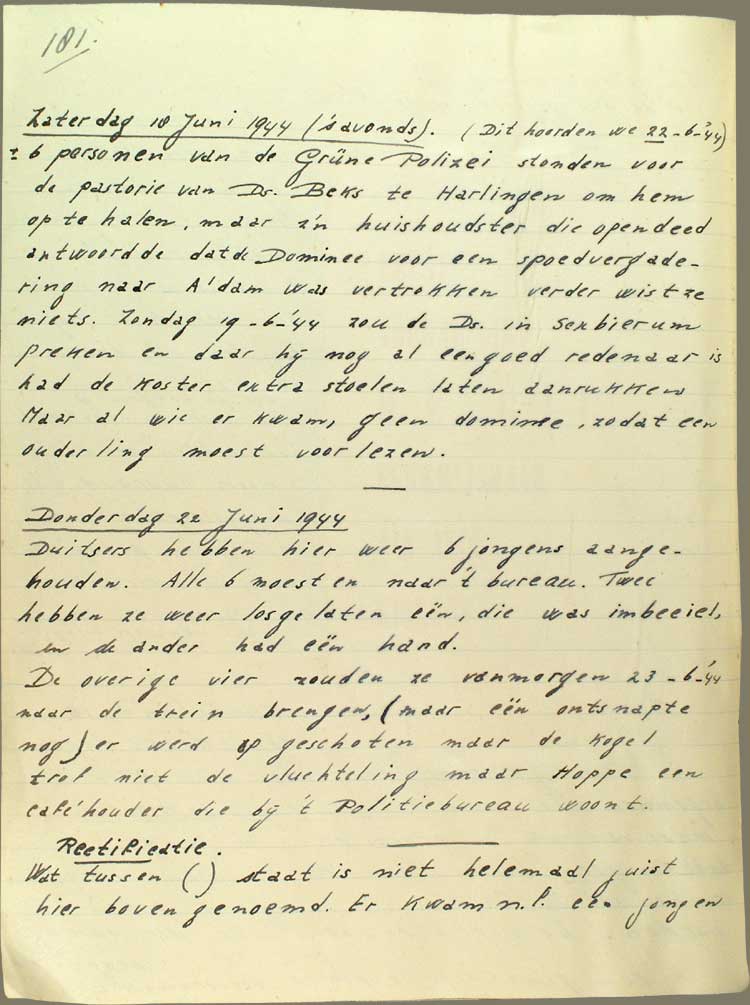 181.
Zaterdag 18 Juni 1944 ('s avonds). (Dit hoorden we 22-6-'44)
± 6 personen van de Grüne Polizei stonden voor
de pastorie van Ds. Beks te Harlingen om hem
op te halen, maar z'n huishoudster die opendeed
antwoordde dat de Dominee voor een spoedvergade-
ring naar A'dam was vertrokken verder wist ze
niets. Zondag 19-6-'44 zou de Ds. in Sexbierum
preken en daar hij nog al een goed redenaar is
had de koster extra stoelen laten aanrukken
Maar al wie er kwam, geen dominee, zodat een
ouderling moest voorlezen.
Donderdag 22 Juni 1944
Duitsers hebben hier weer 6 jongens aange-
houden. Alle 6 moesten naar 't bureau. Twee
hebben ze weer losgelaten eën, die was imbeciel,
en de ander had eën hand.
De overige vier zouden ze vanmorgen 23-6-'44
naar de trein brengen, (maar eën ontsnapte
nog) er werd op geschoten maar de kogel
trof niet de vluchteling maar Hoppe een
caféhouder die bij 't Politiebureau woont.
Rectificatie.
Wat tussen () staat is niet helemaal juist
hier boven genoemd. Er kwam n.l. een jongen